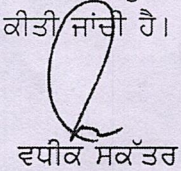 ਕੀਤੀ ਜਾਂਚੀ ਹੈ।
ਵਧੀਕ ਸਕੱਤਰ